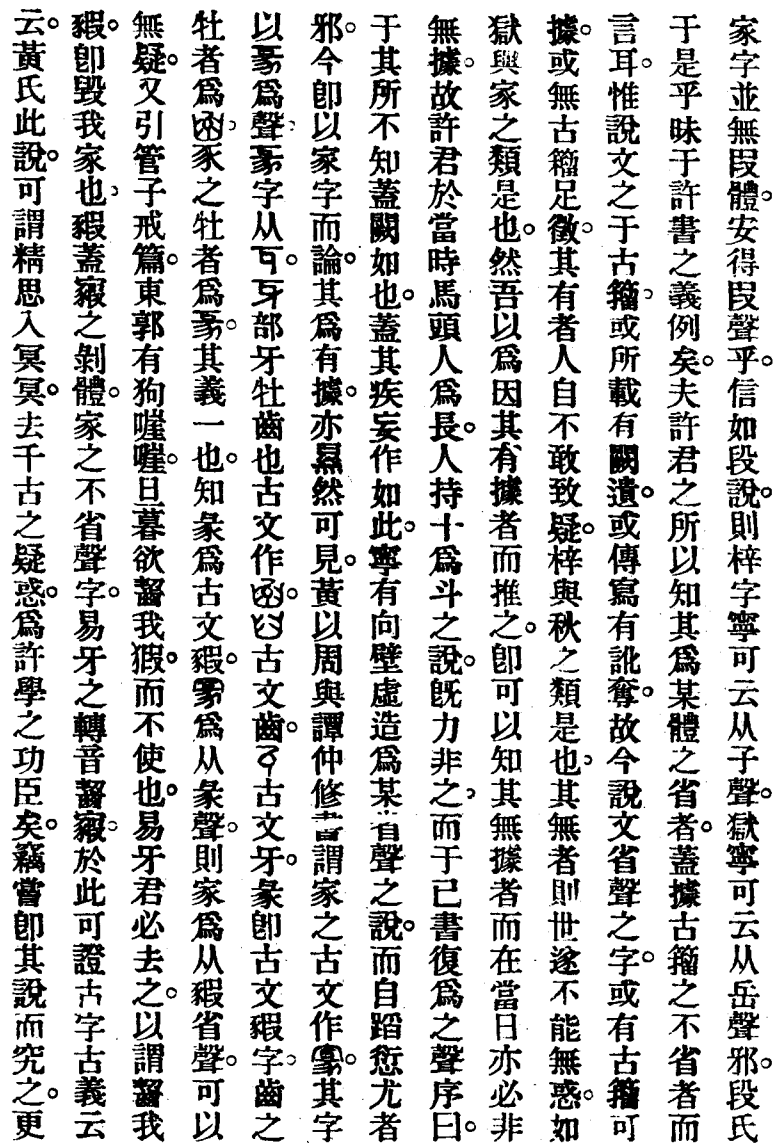 家字並無叚體。安得叚聲乎。信如段說。則梓字寧可云从子聲。獄寧可云从岳聲邪。段氏
于是乎昧于許書之義例矣。夫許君之所以知其爲某體之省者。蓋據古籒之不省者而
言耳。惟說文之于古籒。或所載有闕遺。或傳寫有訛奪。故今說文省聲之字。或有古籒可
據。或無古籒足徵。其有者人自不敢致疑。梓與秋之類是也。其無者則世遂不能無惑。如
獄與家之類是也。然吾以爲因其有據者而推之。卽可以知其無據者而在當日亦必非
無據。故許君於當時馬頭人爲長。人持十爲斗之說。旣力非之。而于已書復爲之聲序曰。
于其所不知蓋闕如也。蓋其疾妄作如此。寧有向壁虛造爲某省聲之說。而自蹈愆尤者
邪。今卽以家字而論。其爲有據。亦顯然可見。黃以周與譚仲修書謂家之古文作。其字
以爲聲。字从。牙部牙牡齒也古文作。古文齒。古文牙。彖卽古文豭字。齒之
牡者爲。豕之牡者爲。其義一也。知彖爲古文豭。爲从彖聲。則家爲从豭省聲。可以
無疑。又引管子戒篇。東郭有狗嘊嘊。旦暮欲齧我猳。而不使也。易牙君必去之。以謂齧我
豭卽毀我家也。豭蓋之剝體。家之不省聲字。易牙之轉音齧。於此可證古字古義云
云。黃氏此說。可謂精思入冥冥。去千古之疑惑。爲許學之功臣矣。竊嘗卽其說而究之。更